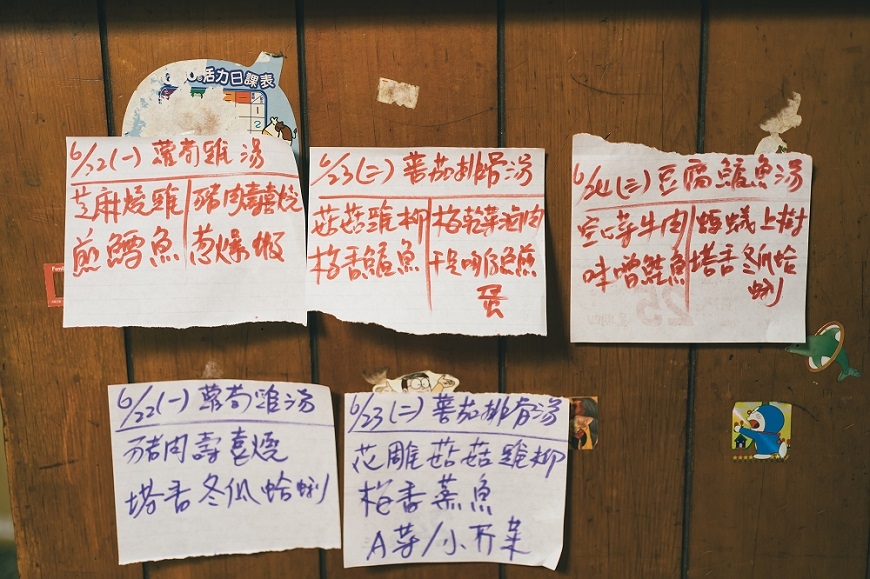 活力日課表
6/22(一) 蘿蔔雞湯
芝麻燒雞 豬肉壽喜燒
煎鱈魚 蔥爆蝦
6/23(二) 番茄排骨湯
菇菇雞柳 梅乾菜滷肉
梅香鱸魚 干貝吻仔魚煎
蛋
6/24(三) 豆腐鱸魚湯
空心菜牛肉 螞蟻上樹
味噌鮭魚 塔香冬瓜蛤
蜊
6/22(一) 蘿蔔雞湯
豬肉壽喜燒
塔香冬瓜蛤蜊
6/23(二) 番茄排骨湯
花雕菇菇雞柳
梅香蒸魚
A菜/小芥菜